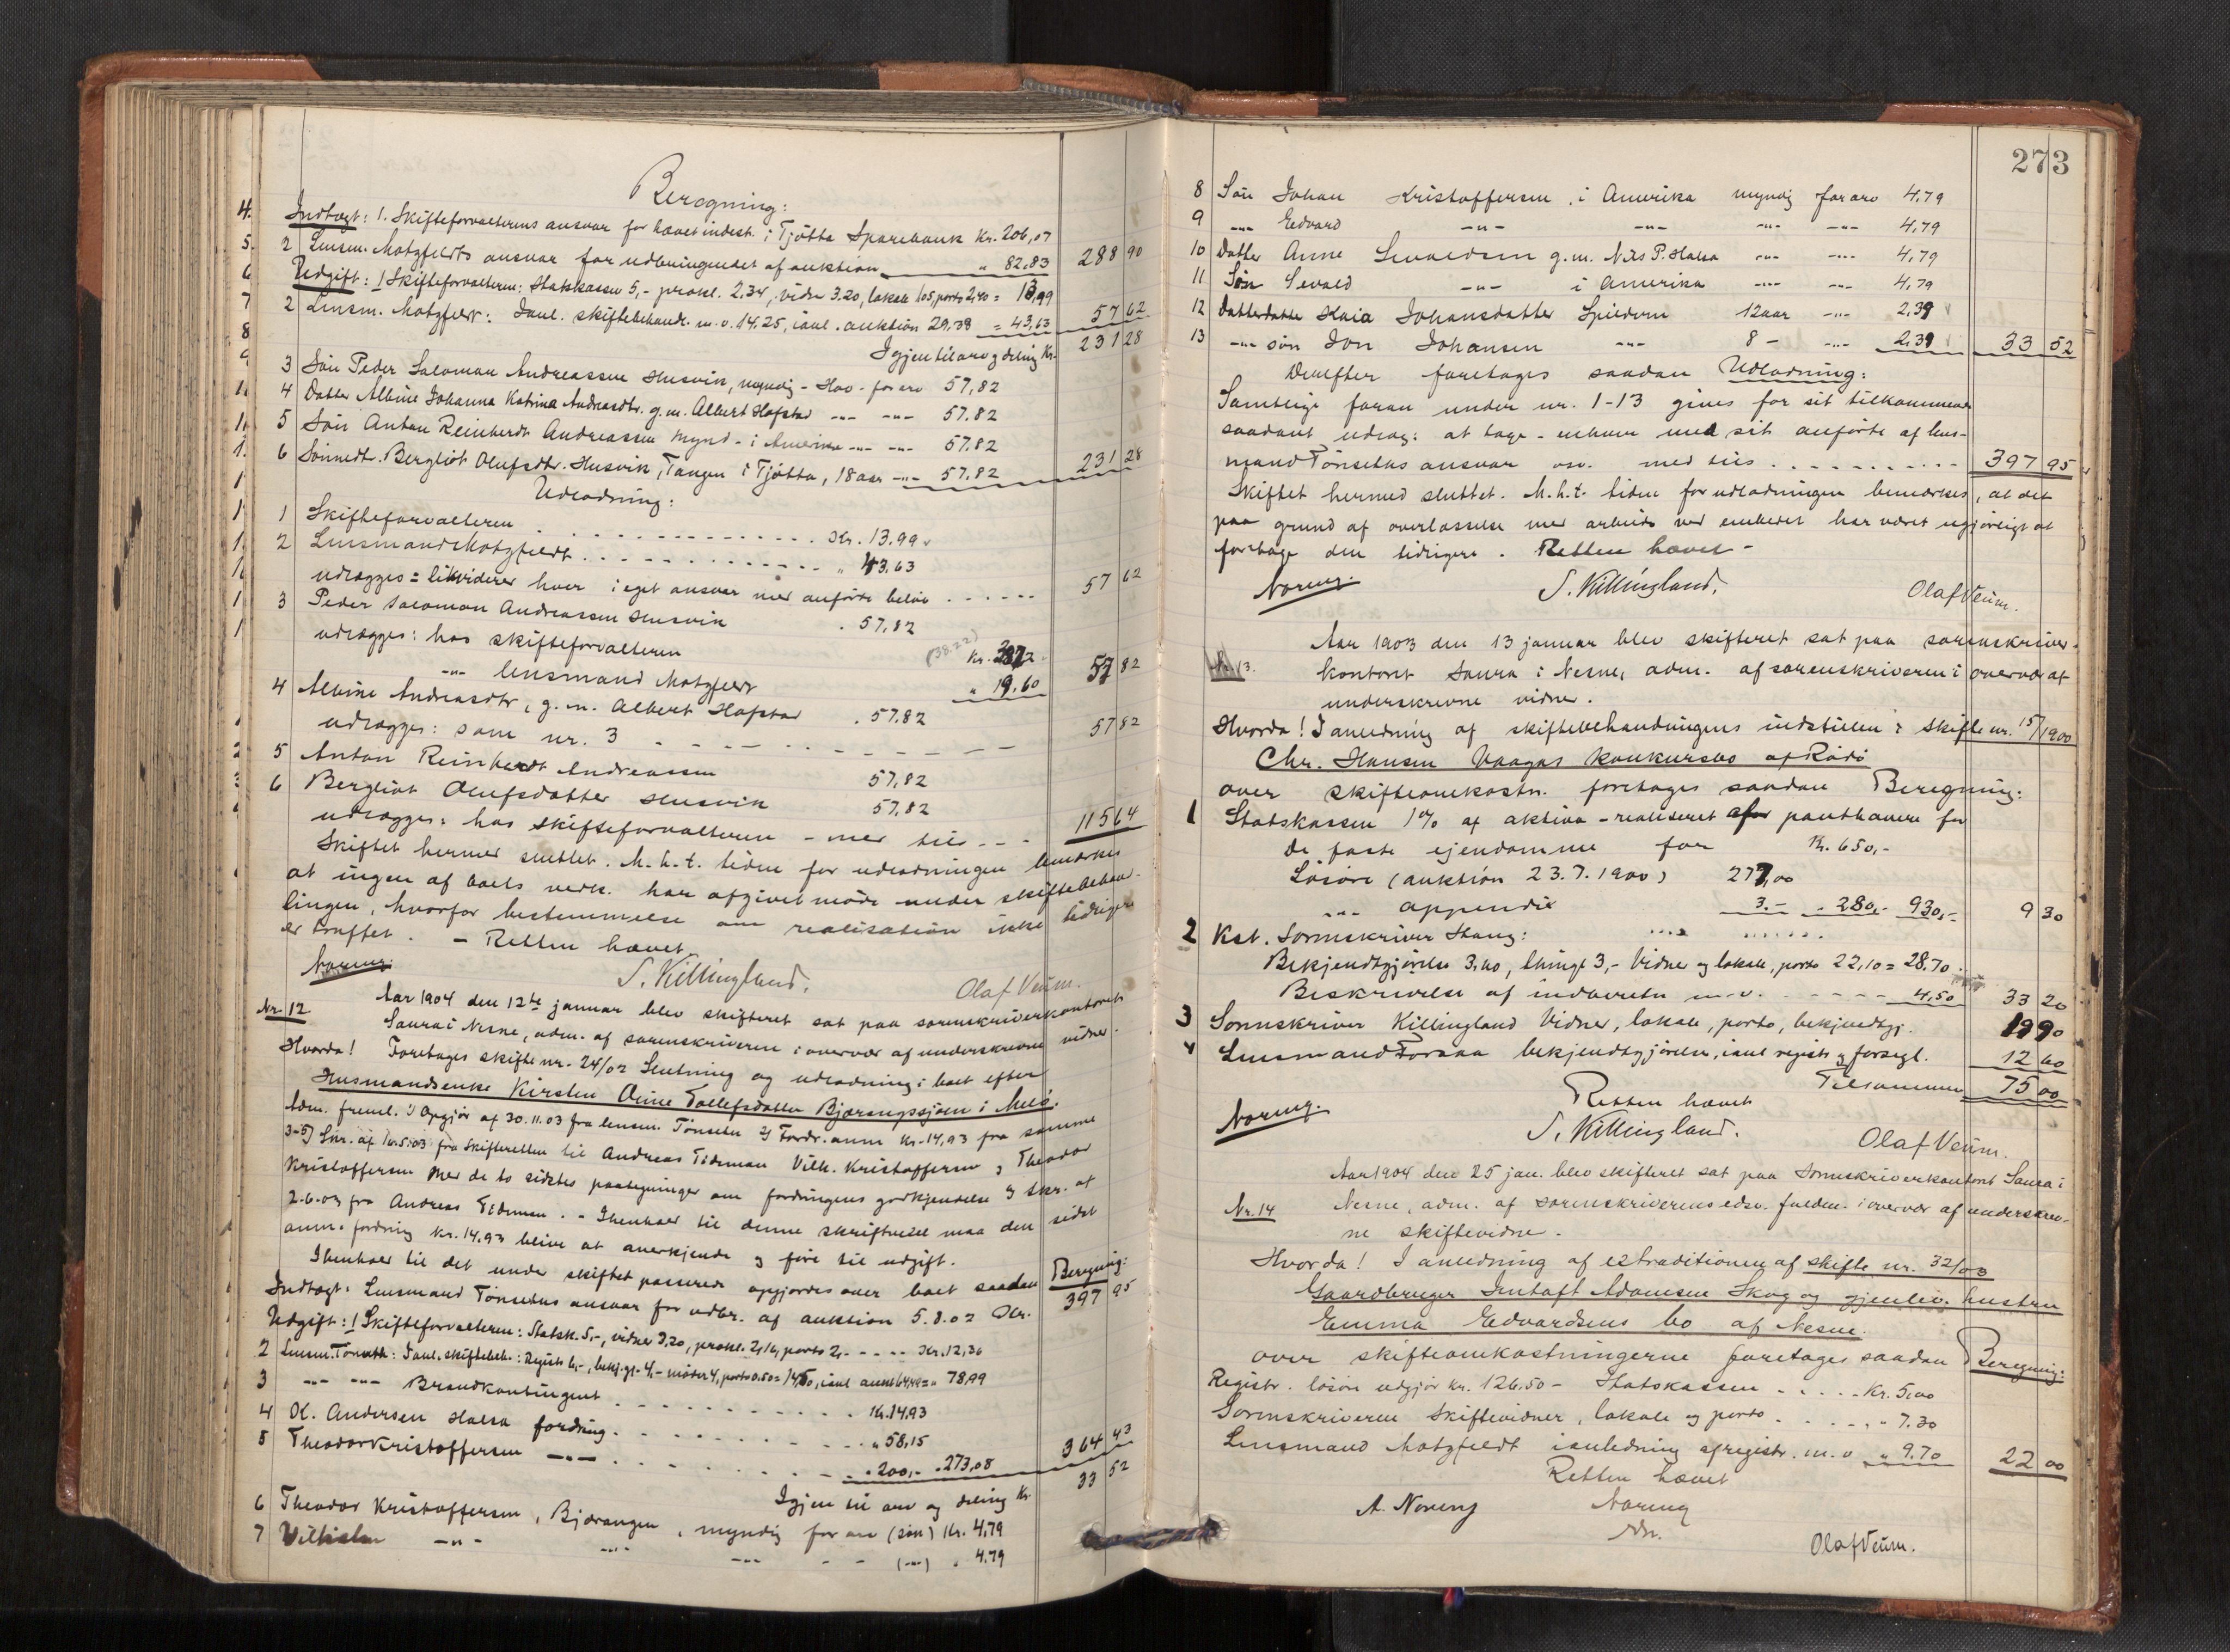 Beregning:
Indtægt: 1. Skifteforvalterens ansvar for hævet indest. i Tjøtta Sparebank Kr. 206,07
2 Lensm. Motzfeldts ansvar for udbringendet af auktion " 82,83 288 90
Udgift: 1 Skifteforvalteren: Statskassen 5,- protok. 2.34, vidn 3.20, lokale 1.05, porto 2,40 = 13,99
2 Lensm. Motzfeldt: Ianl. skiftebehandl. m.v. 14.25, ianl. auktion 29.38 = 43,63 57 62
Igjen til arv og deling Kr. 231 28
3 Søn Peder Salomon Andreassen Husvik, myndig - Hav - for arv 57,82
4 Datter Albine Johanna Katrina Andreasdtr. g.m. Albert Hofstad -"- -"- 57.82
5 Søn Anton Reinherdt Andreassen mynd - i Amerika -"- -"- 57,82
6 Sønnedtr. Bergliot Olufsdtr. Husvik, Tangen i Tjøtta, 18 aar -"- 57,82 231 28
Udlodning:
1 Skifteforvalteren Kr. 13.99
2 Lensmand Motzfeldt " 43.63
udlægges = likviderer hver i eget ansvar med anførte beløb 57 62
3 Peder Salomon Andreassen Husvik . 57,82
udlægges: hos skifteforvalteren (38.22) Kr.
-"- lensmand Motzfeldt " 19.60 57 82
4 Albine Andreasdtr, g.m. Albert Hofstad . 57.82
udlægges: som nr. 3 57 82
5 Anton Reinherdt Andreassen 57,82
6 Bergliot Olufsdatter Husvik 57,82
udlægges: hos skifteforvalteren - med tils 115 64
Skiftet hermed sluttet. M.h.t. tiden for udlodningen bemærkes
at ingen af boets vedk. har afgivet møde under skiftebehand-
lingen, hvorfor bestemmelse om realisation ikke tidligere
er truffet. - Retten hævet
Noreng. S. Killingland. Olaf Veum.
Nr. 12 Aar 1904 den 12te januar blev skifteret sat paa sorenskriverkontoret
Saura i Nesne, adm. af sorenskriveren i overvær af underskrevne vidner.
Hvorda! Foretages skifte nr. 24/02 Slutning og udlodning i boet efter
Husmandsenke Kirsten Oline Tollefsdatter Bjærangssjøen i Melø.
Adm. freml. 1) Opgjør af 30.11.03 fra lensm. Tønseth 2) Fordr. anm Kr. 14,93 fra samme
3-5) Skr. af 10.5.03 fra Skifteretten til Andreas Tideman Vilh. Kristoffersen og Theodor
Kristoffersen med de to sidstes paategninger om fordringens godkjendelse 6) Skr. af
2-6-03 fra Andreas Tideman. - Ihenhold til denne skriftvexel maa den sidst
anm. fordring Kr. 14.93 blive at anerkjende og føre til udgift.
Ihenhold til det under skiftet passerede opgjordes over boet saadan Beregning:
Indtægt: Lensmand Tønseths ansvar for udbr. af auktion 5.8.02 Kr. 397 95
Udgift: 1 Skifteforvalteren: Statsk. 5,-, vidner 3,20, protok. 2,16, porto 2,- Kr. 12,36
2 Lensm. Tønseth: Ianl. skiftebeh.: Registr 6,-, bekj.gj. 4,- møter 4, porto 0.50 = 14,50, ianl auk 64,49 = " 78,99
3 -"- -"- Brandkontingent Kr. 14,93
4 Ol. Andersen Halsa fordring " 58,15
5 Theodor Kristoffersen -"- . 200,- . 273,08 364 43
Igjen til arv og deling Kr 33 52
6 Theodor Kristoffersen, Bjærangen, myndig for arv (søn) Kr. 4,79
7 Vilhelm -"- -"- -"- - - (-"-) . 4.79
273
8 Søn Johan Kristoffersen, i Amerika myndig for arv 4,79
9 -"- Edvard -"- -"- -"- -"- 4,79
10 Datter Anne Sevaldsen g.m. Nils P. Halsa -"- -"- 4,79
11 Søn Sevald -"- i Amerika -"- -"- 4,79
12 Datterdatter Kaia Johansdatter Spildern 12 aar -"- 2.39
13 -"- søn Jon Johansen -"- 8 - -"- 2.39 33 52
Derefter foretages saadan Udlodning:
Samtlige foran under nr. 1-13 gives for sit tilkommende
saadant udlæg: at tage - enhver med sit anførte af lens-
mand Tönseths ansvar osv. med tils 397 95
Skiftet hermed sluttet. M.h.t. tiden for udlodningen bemærkes, at det
paa grund af overlæsselse med arbeide ved embedet har været ugjørligt at
foretage den tidligere. Retten hævet -
Noreng. S. Killingland. Olaf Veum.
Aar 1903 den 13 januar blev skifteret sat paa sorenskriver-
Nr. 13. kontoret Saura i Nesne, adm. af sorenskriveren i overvær af
underskrevne vidner.
Hvorda! I anledning af skiftebehandlingens indstillen i Skifte nr. 15/1900
Chr. Hansen Vaagas konkursbo af Rödö
over skifteomkostn. foretages saadan Beregning:
1 Statskassen 1% af aktiva - realiseret af panthavere for
de faste ejendomme for Kr. 650,-
Lösöre (auktion 23.7.1900) 277,00
-"- appendix 3.- . 280,- 930,- 9 30
2 Kst. Sorenskriver Stang:
Bekjendtgjörelse 3,60, thingl 3,- Vidner og lokale, porto 22,10 = 28.70
Beskrivelse af indberetn m.v. 4,50 33 20
3 Sorenskriver Killingland Vidner, lokale, porto, bekjendtgj. 19 90
4 Lensmand Forsaa bekjendtgjörelse, ianl registr og forsegl. 12 60
Tilsammen 75 00
Retten hævet
Noreng. S. Killingland. Olaf Veum.
Aar 1904 den 25 jan. blev skifteret sat paa Sorenskriverkontoret Saura i
Nr. 14 Nesne, adm. af sorenskriverens edsv. fuldm. i overvær af underskrev-
ne skiftevidne.
Hvorda! I anledning af extraditionen af skifte nr. 32/03
Gaardbruger Adamsen Skog og gjenlev. hustru
Emma Edvardsens bo af Nesne.
over skifteomkostningerne foretages saadan Beregning:
Registr. løsøre udgjør kr. 126.50 - Statskassen Kr. 5,00
Sorenskriveren Skiftevidner, lokale og porto " 7.30
Lensmand Motzfeldt ianledning af registr. m.v " 9.70 22 00
Retten hævet
A. Noreng Noreng
Olaf Veum.